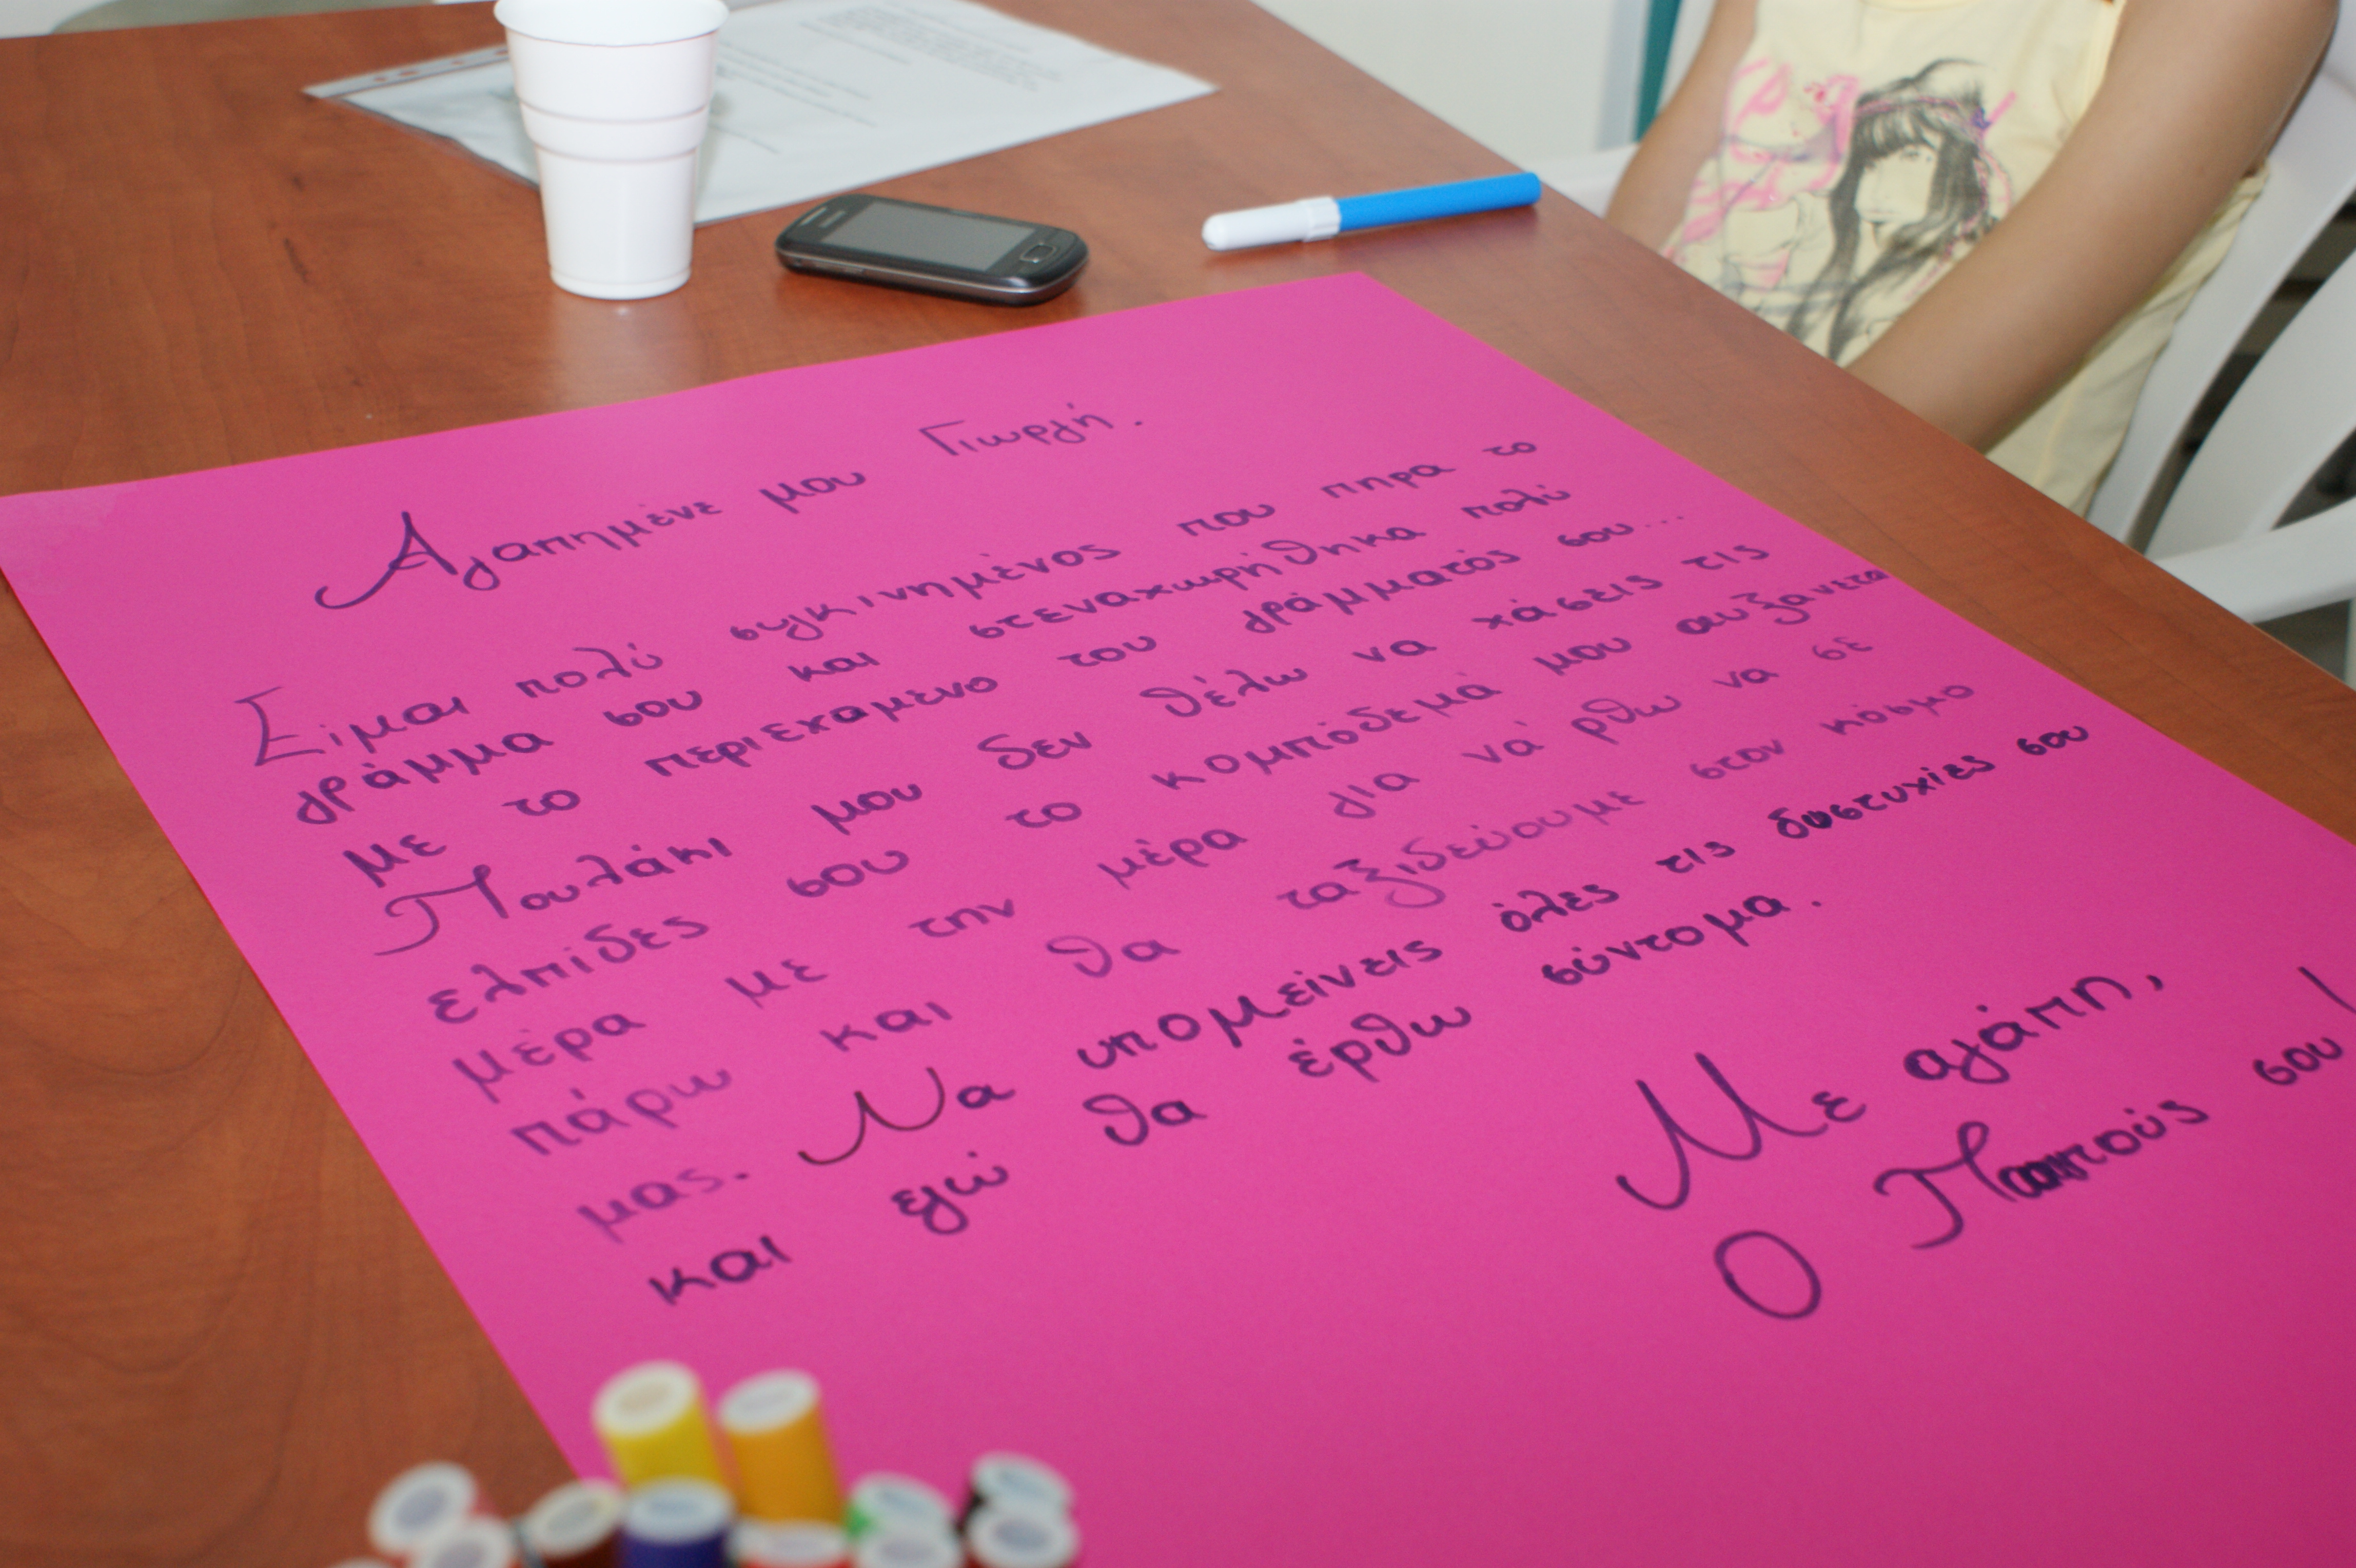 Αγαπημένε μου Γιωργή.
Είμαι πολύ συγκινημένος που πηρα το
γράμμα σου και στεναχωρήθηκα πολύ
με το περιεχαμενο του γράμματός σου...
Πουλάκι μου δεν θέλω να χάσεις τις
ελπίδες σου το κομπόδεμά μου αυξανεται
μέρα με την μέρα για νά ρθω να σε
πάρω και θα ταξιδεύουμε στον κόσμο
μας. Να υπομείνεις όλες τις δυστυχίες σου
και εγώ θα έρθω σύντομα.
Με αγάπη,
Ο Παππούς σου!